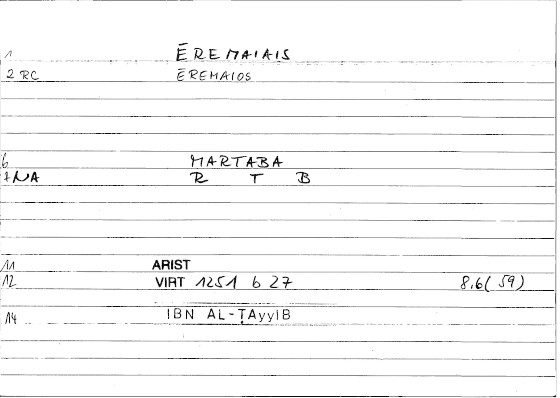 1 ĒREMAIAIS
2 RC ĒREMAIOS
6 MARTABA
7 NA R T B
11 ARIST
12 VIRT 1251 b 27 8.6(59)
14 IBN AL-ṬAyyIB